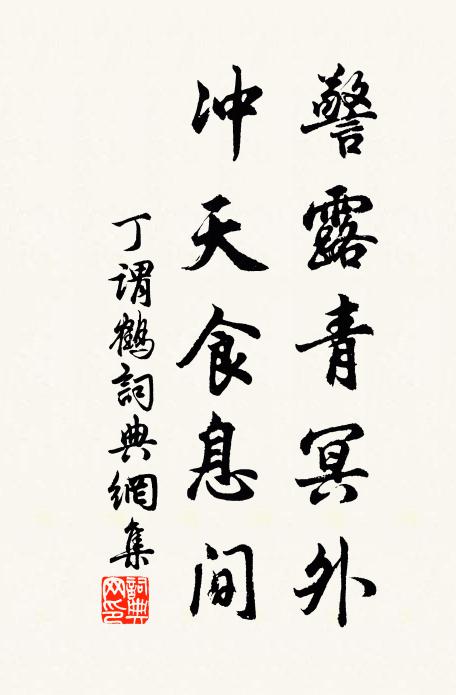 警露青冥外
冲天食息间
丁謂鶴詞典網集
詞典网印